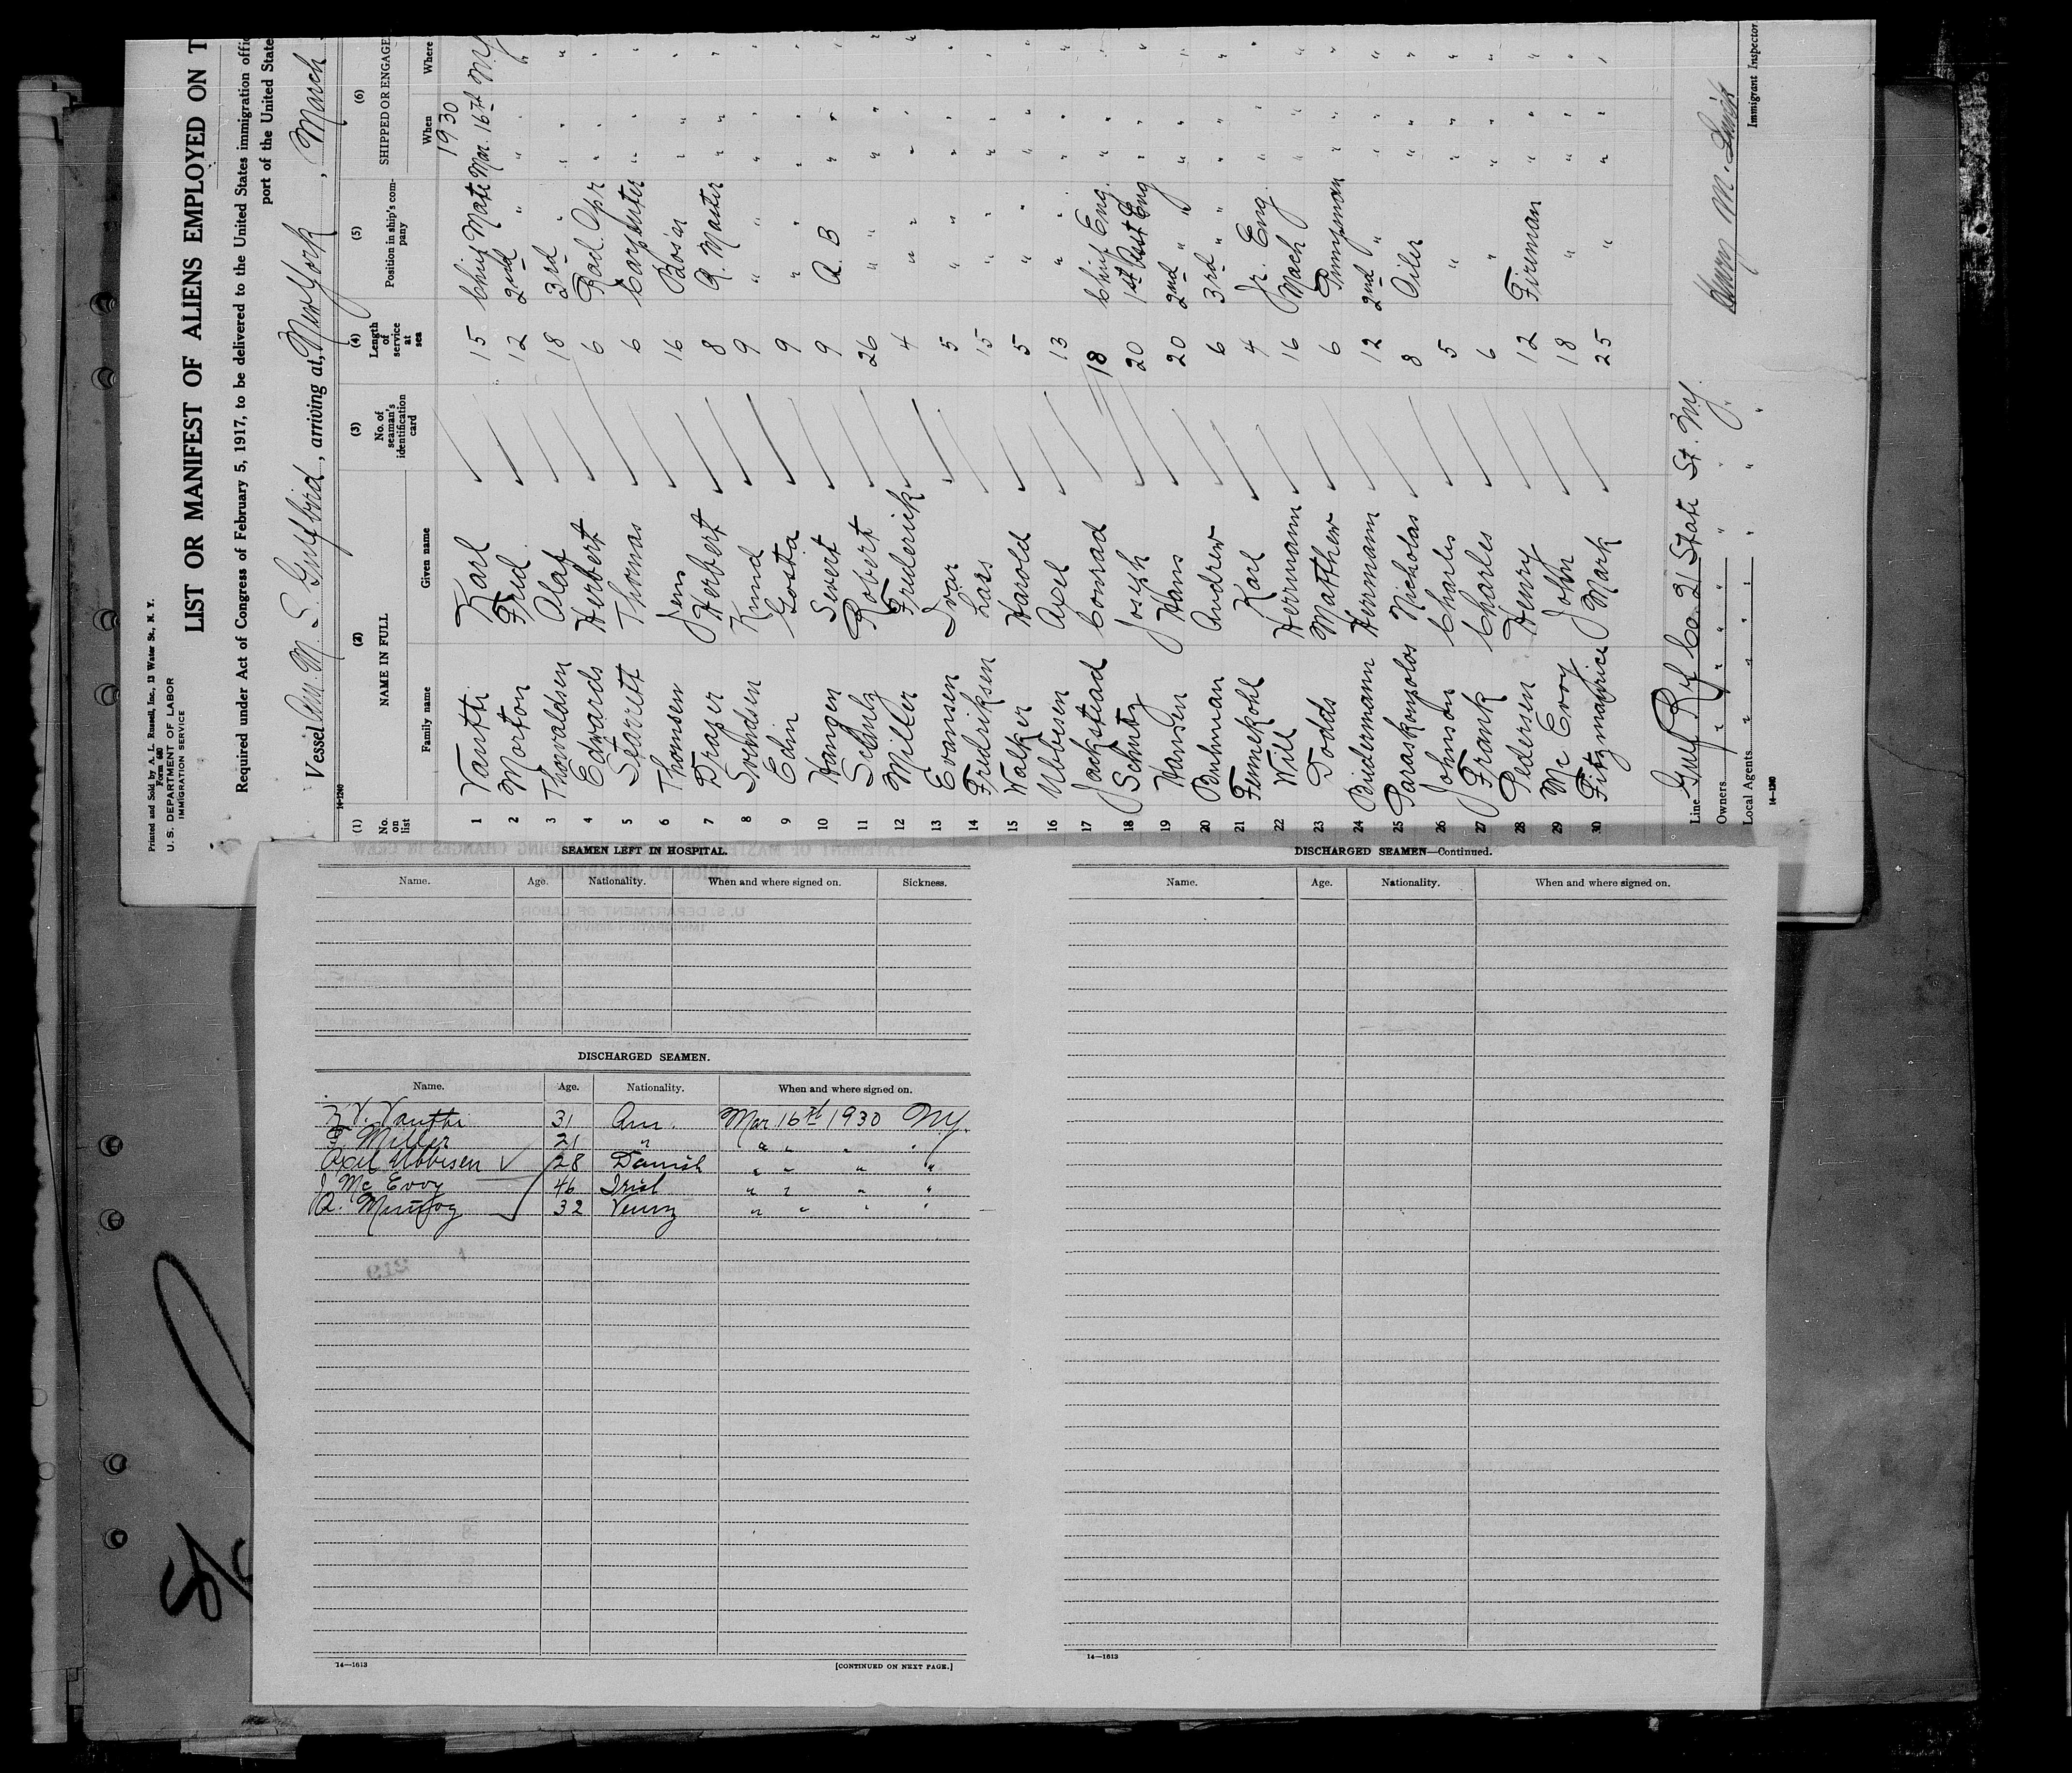 Printed and Sold by A. L. Russell, Inc., 13 Water St., N. Y.
Form 680
U. S. DEPARTMENT OF LABOR
IMMIGRATION SERVICE
LIST OR MANIFEST OF ALIENS EMPLOYED ON T
Required under Act of Congress of February 5, 1917, to be delivered to the United States immigration offic
port of the United State
Vessel Am. M. S. Gulfbird, arriving at, New York, March
14-1240
(1) (2) (3) (4) (5) (6)
No. on list NAME IN FULL No. of seaman's identification card Length of service at sea Position in ship's company SHIPPED OR ENGAGE
Family name Given name When Where
1930
1 Vauthi Karl 15 Chief Mate Mar. 16th N.Y
2 Morton Fred 12 2nd " " " "
3 Thorvaldsen Olaf 18 3rd " " " "
4 Edwards Herbert 6 Rad. Opr " " "
5 Starritt Thomas 6 Carpenter " " "
6 Thomsen Jens 16 Bos'an " " "
7 Draper Herbert 8 Q. Master " " "
8 Svendsen Knud 9 " " " " "
9 Edin Gosta 9 " " " " "
10 Hangen Severt 9 A. B " " "
11 Robert 26 " " " " "
12 Miller Frederick 4 " " " " "
13 Evansen Ivar 5 " " " " "
14 Fredriksen Lars 15 " " " " "
15 Walker Harold 5 " " " " "
16 Ubbesen Axel 13 " " " " "
17 Jackstead Conrad 18 Chief Eng. " " "
18 Schultz Joseph 20 1st Asst Eng " " "
19 Hansen Hans 20 2nd " " " " "
20 Penhman Andrew 6 3rd " " " " "
21 Finnekohl Karl 4 Jr. Eng. " " "
22 Will Herrmann 16 Mach " " "
23 Dodds Matthew 6 Pumpman " " "
24 Biedermann Herrmann 12 2nd " " " "
25 Paraskovpolos Nicholas 8 Oiler " " "
26 Johnson Charles 5 " " " "
27 Frank Charles 6 " " " "
28 Pedersen Henry 12 Fireman " " "
29 Mc Evoy John 18 " " " "
30 Fitzmaurice Mark 25 " " " "
Line Gulf Rf Co. 21 State St. N.Y.
Owners " " " " " "
Local Agents " " " " " "
14-1240
Immigrant Inspector
SEAMEN LEFT IN HOSPITAL.
Name. Age. Nationality. When and where signed on. Sickness.
DISCHARGED SEAMEN.
Name. Age. Nationality. When and where signed on.
K V. Vauthi 31 Am. Mar 16th 1930 N.Y.
F. Miller 21 " " " " "
Axel Ubbesen 28 Danish " " " "
J Mc Evoy 46 Irish " " " "
A. 32 " " " "
14-1613
[CONTINUED ON NEXT PAGE.]
DISCHARGED SEAMEN—Continued.
Name. Age. Nationality. When and where signed on.
14-1613